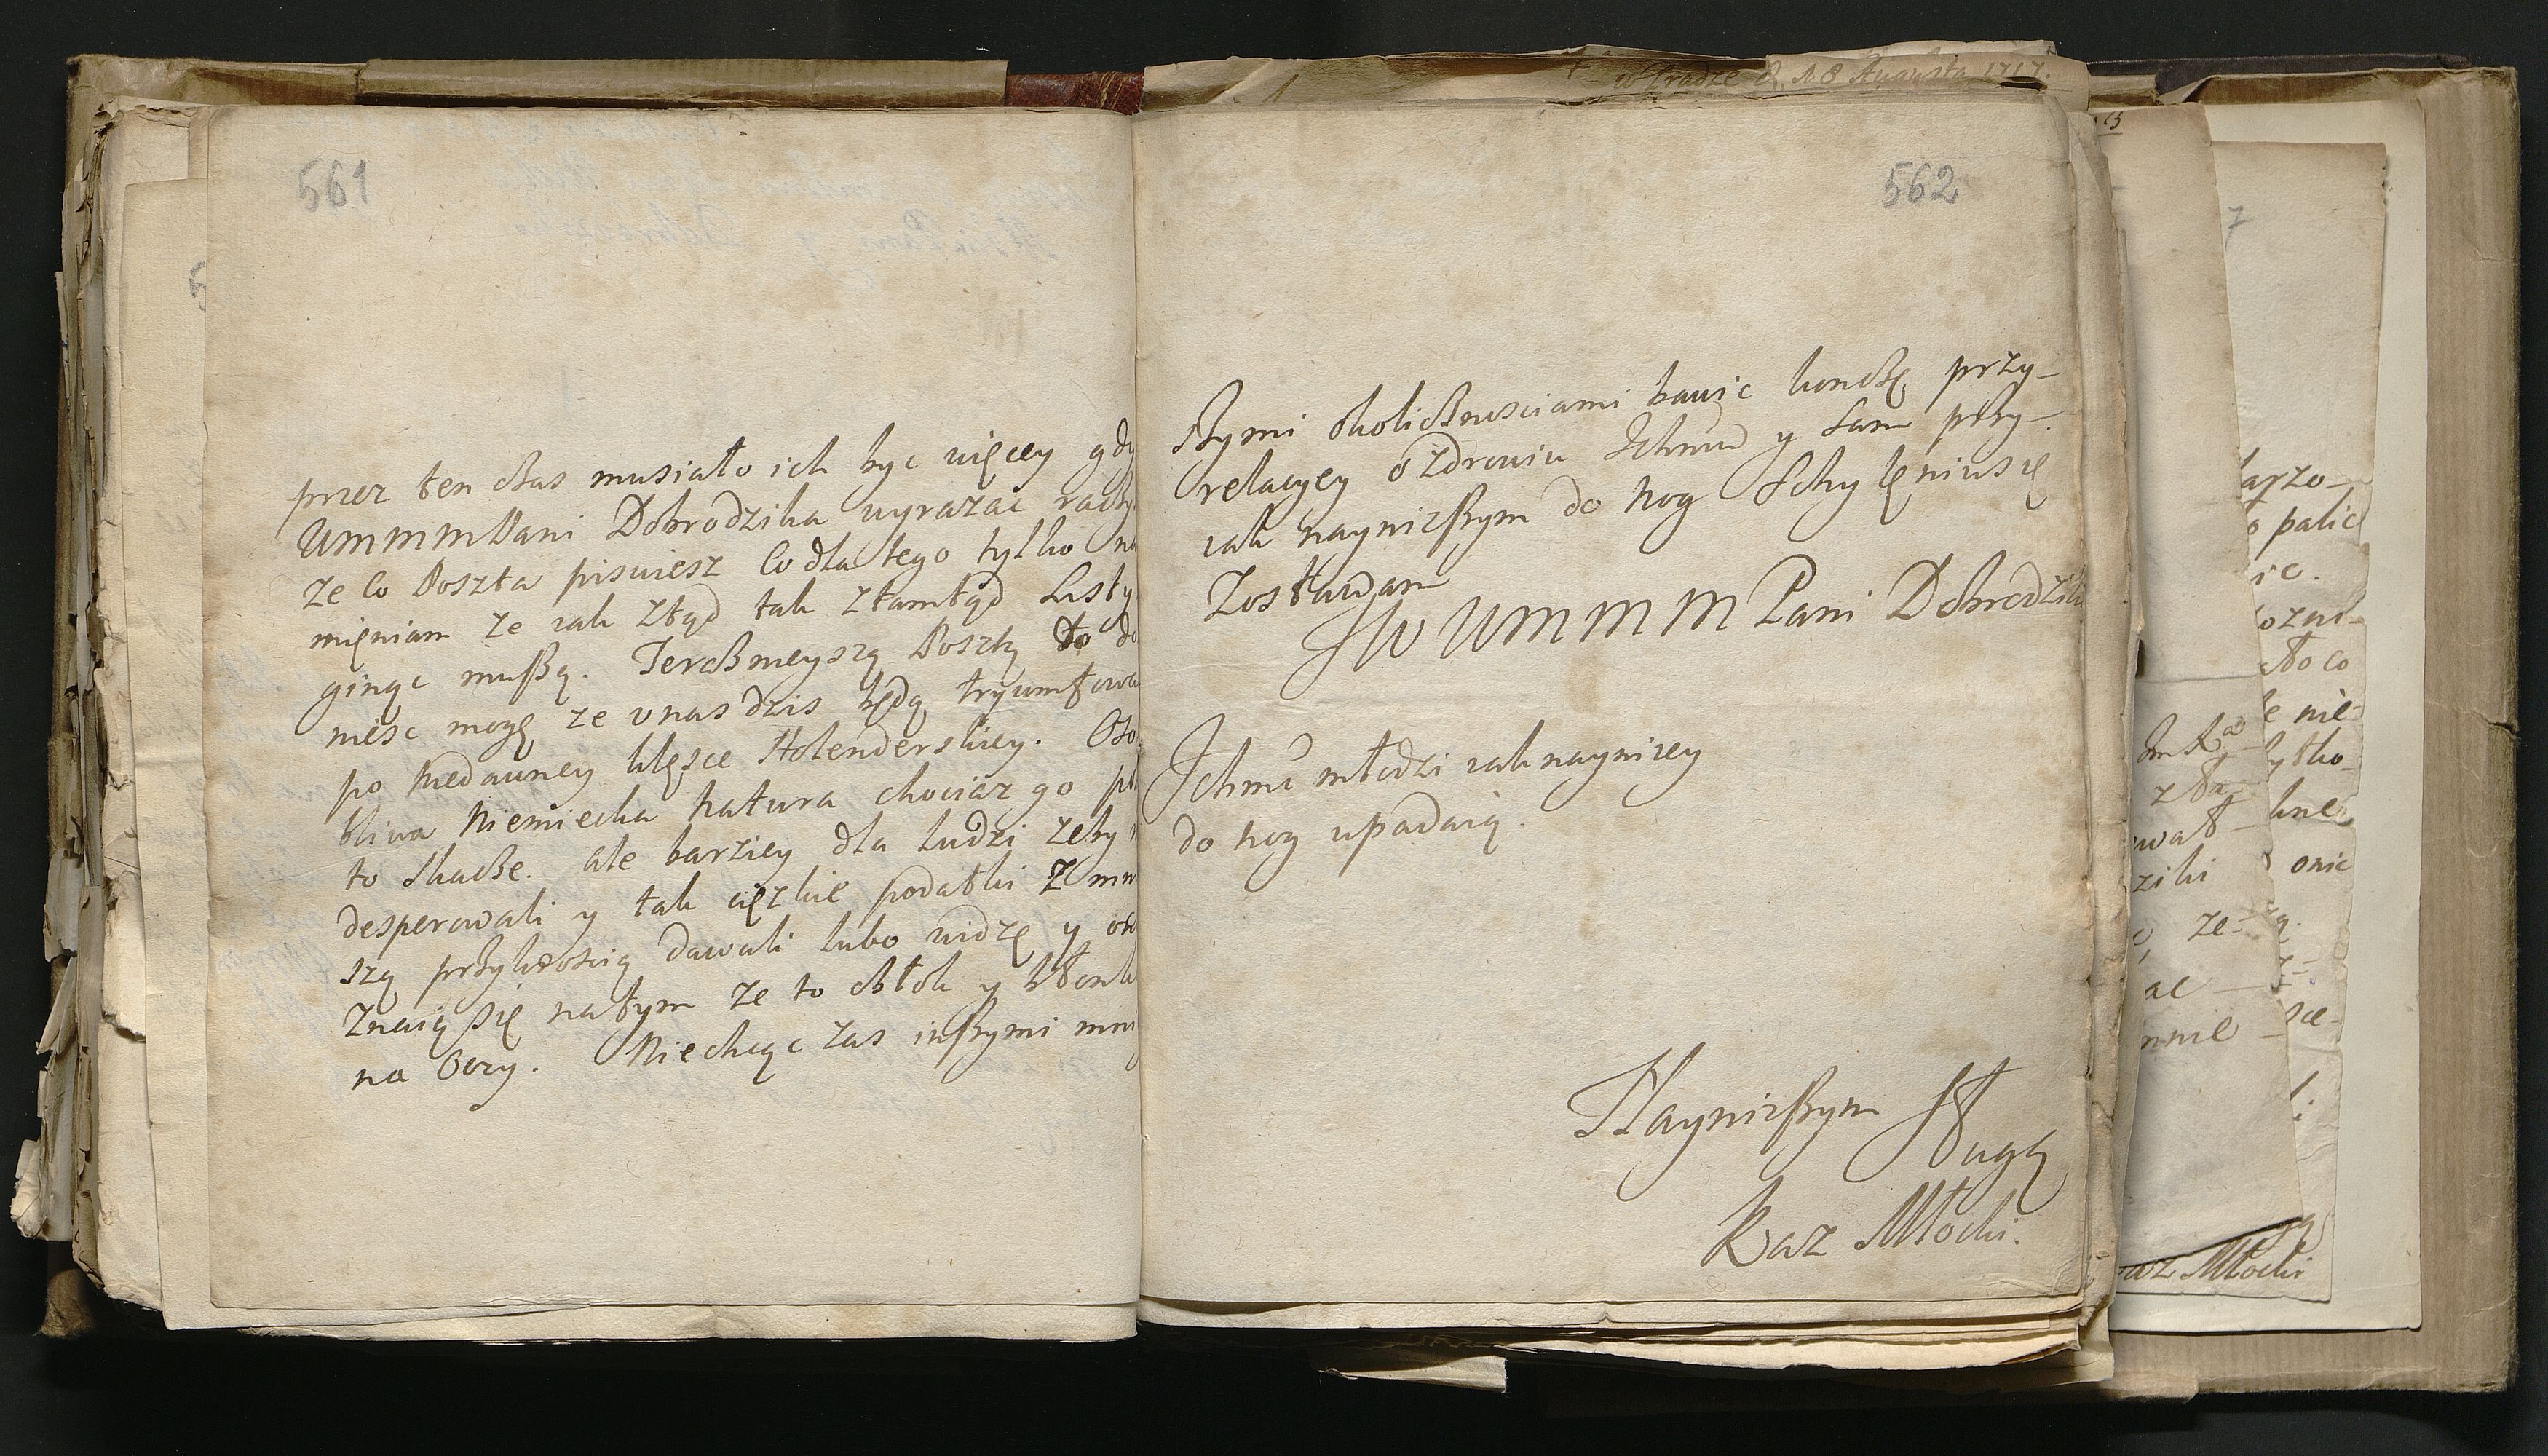 w Pradze d. 18 Augusta 1717.
561
przez ten czas musiało ich byc więcey gdy
UmmmPani Dobrodzika wyrazac raczy
ze Co Poszta pisuiesz Co dla tego tylko na
mięniam ze iak ztąd tak ztamtąd Listy
ginąc muszą. Teraznieyszą Posztą to do
niesc mogę ze v nas dzis będą tryumfowa
po niedawney klęsce Holenderskiey. Oso
bliwa Niemiecka natura chociaz go
to skacze. ale barziey dla ludzi zeby n
desperowali y tak cięzkie podatki Z mn
szą przykroscią dawali lubo widzę y
Znaią się natym ze to obłok y
na Oczy. Niechcąc zas inszymi mni
562
szymi okolicznosciami bawic konczę przy-
relacyey o zdrowiu Ichmci y sam przy-
iak nayniszym do nog Schylęniusię
Zostawam
JW UmmmPani Dobrodziki
Ichmć młodzi iak nayniżey
do nog upadaią.
Nayniższym Sługą
Kaz Młocki.
palic
zna-
to co
nie-
tylko-
ziki
ze-
mnie
az Młocki